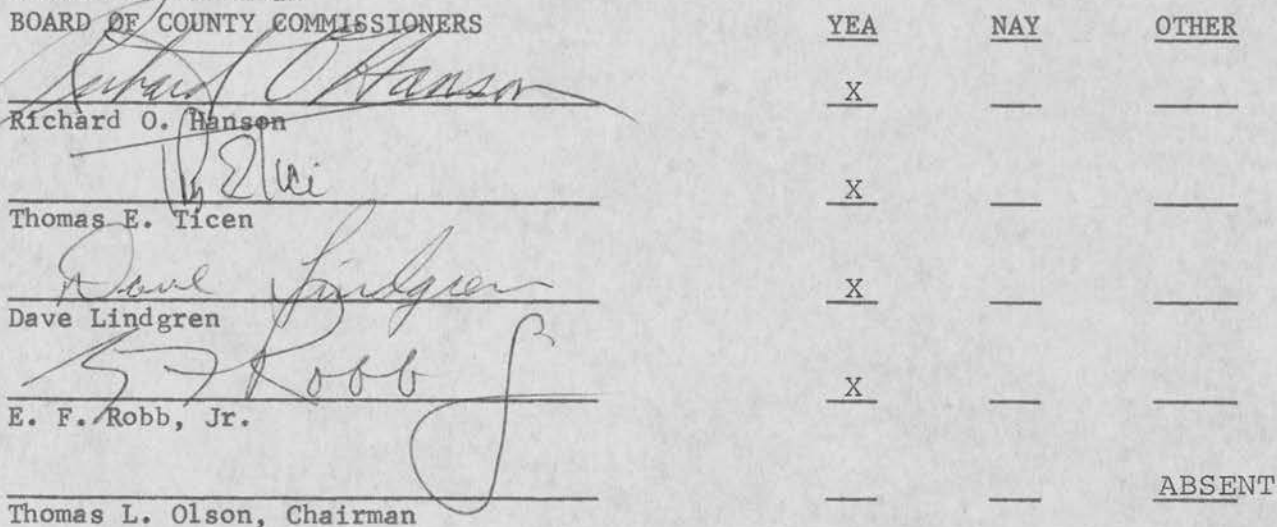 BOARD OF COUNTY COMMISSIONERS YEA NAY OTHER
Richard O Hanson X
Richard O. Hanson
X
Thomas E. Ticen
Dave Lindgren X
Dave Lindgren
E F Robb Jr X
E. F. Robb, Jr.
ABSENT
Thomas L. Olson, Chairman